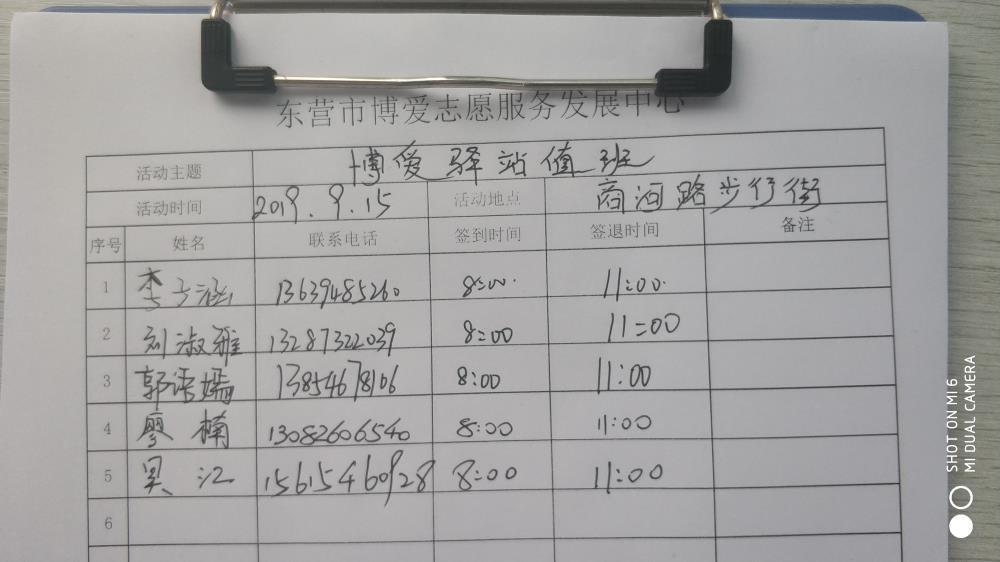 东营市博爱志愿服务发展中心
活动主题 博爱驿站值班
活动时间 2019.9.15 活动地点 商河路步行街
序号 姓名 联系电话 签到时间 签退时间 备注
1 李子涵 13639485260 8:00 11:00
2 刘淑雅 13287322039 8:00 11:00
3 郭语嫣 13854678106 8:00 11:00
4 廖楠 13082606540 8:00 11:00
5 吴江 15615460928 8:00 11:00
6
SHOT ON MI 6
MI DUAL CAMERA